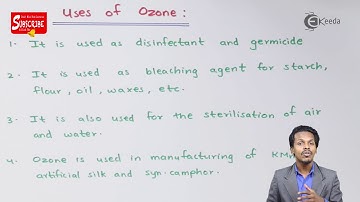 SUBSCRIBE
Ekeeda
Uses of Ozone :
1. It is used as disinfectant and germicide
2. It is used as bleaching agent for starch,
flour, oil, waxes, etc.
3. It is also used for the sterilisation of air
and water.
4. Ozone is used in manufacturing of
artificial silk and syn. camphor.